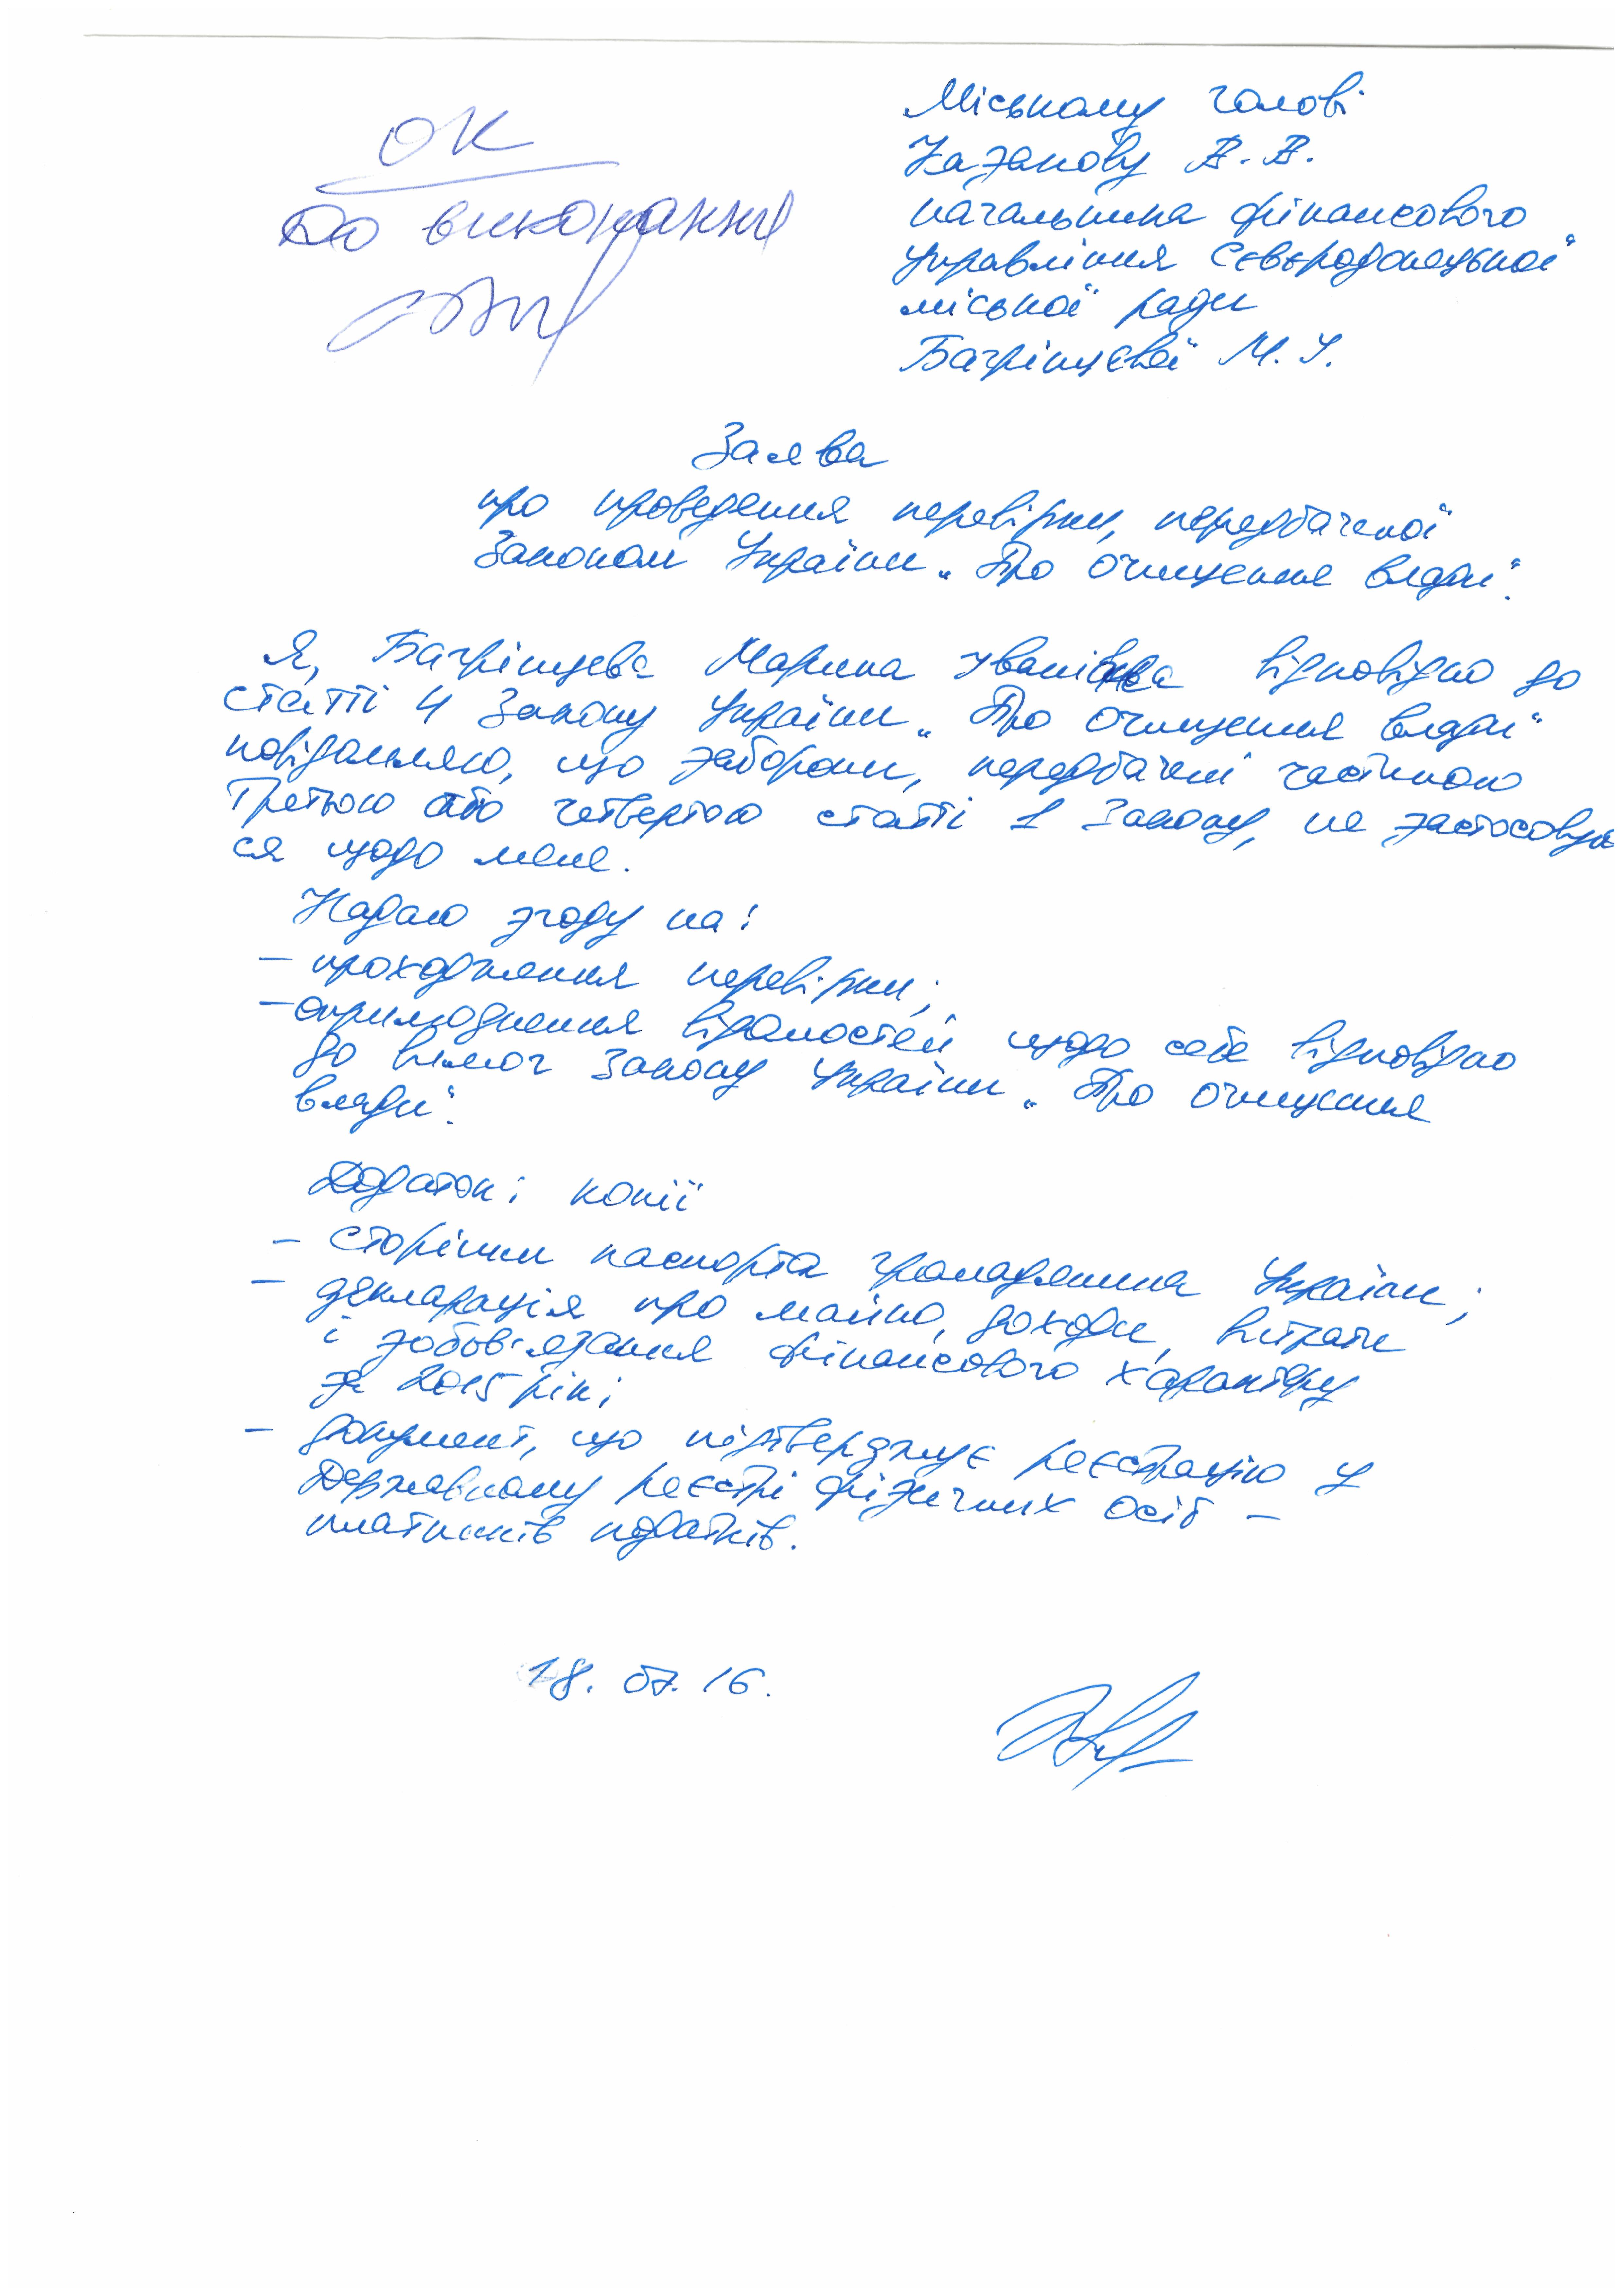 ОК
До виконання
Міському голові
Казакову В. В.
начальника фінансового
управління Сєвєродонецької
міської ради
Багрінцевої М. І.
Заява
про проведення перевірки, передбаченої
Законом України „Про очищення влади".
Я, Багрінцева Марина Іванівна відповідно до
статті 4 Закону України „Про очищення влади"
повідомляю, що заборони, передбачені частиною
третьою або четвертою статті 1 Закону, не застосовують
ся щодо мене.
Надаю згоду на:
– проходження перевірки;
– оприлюднення відомостей щодо себе відповідно
до вимог Закону України „Про очищення
влади".
Додаток: копії
– сторінки паспорта громадянина України;
– декларація про майно, доходи, витрати
і зобов'язання фінансового характеру
за 2015 рік;
– документ, що підтверджує реєстрацію у
Державному реєстрі фізичних осіб –
платників податків.
18. 07. 16.